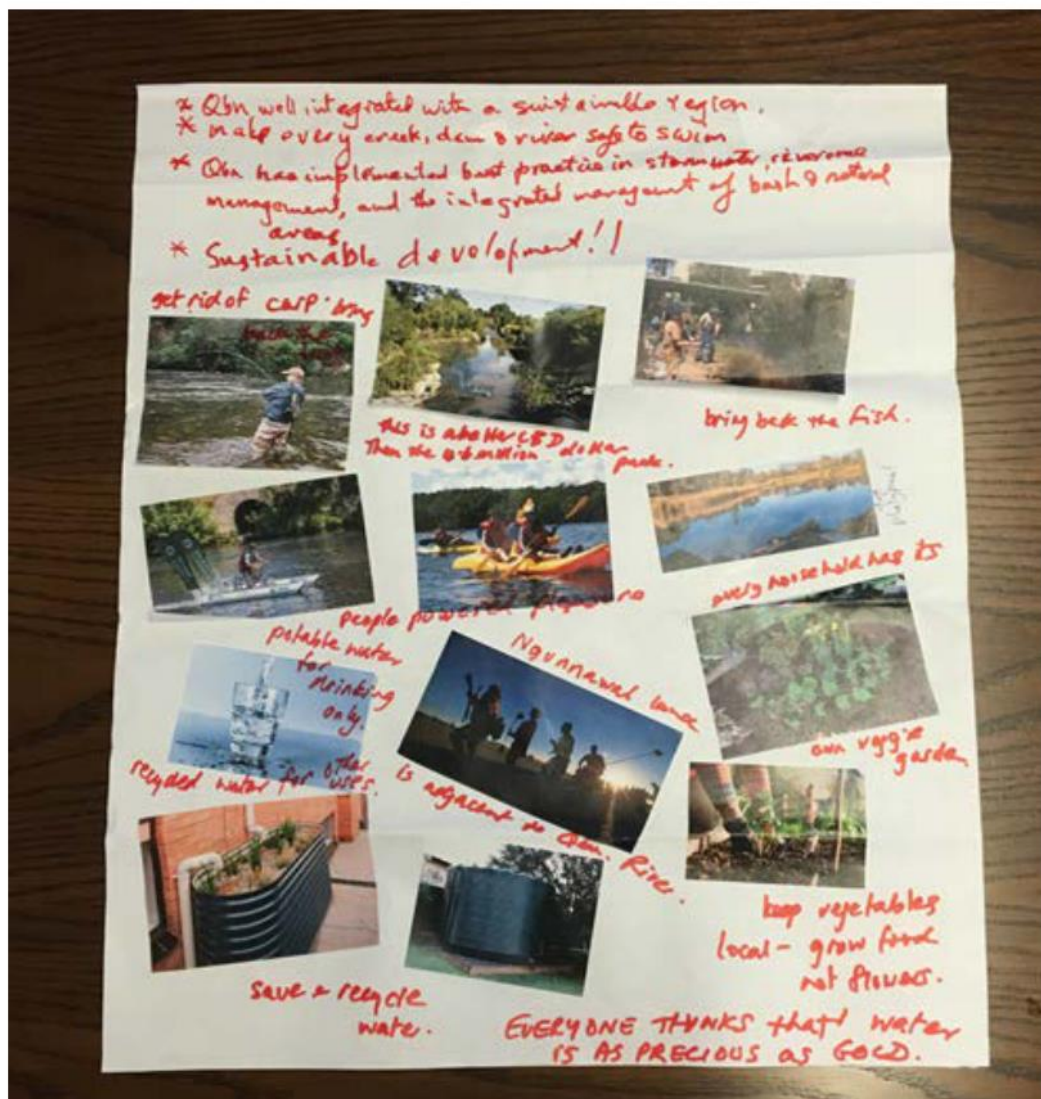 * Qbn well integrated with a sustainable region.
* make every creek, dam & river safe to swim
* Qbn has implemented best practice in stormwater,
management, and the integrated management of bush & natural
areas
* Sustainable development!!
get rid of carp. bring
back the
this is a better CBD
Then the million dollar park.
bring back the fish.
people powered
every household has its
own veggie
garden
potable water
for
drinking
only.
recycled water for other
uses.
Ngunnawal
is adjacent to Qbn. River.
save & recycle
water.
keep vegetables
local - grow food
not flowers.
EVERYONE THINKS that water
IS AS PRECIOUS as GOLD.